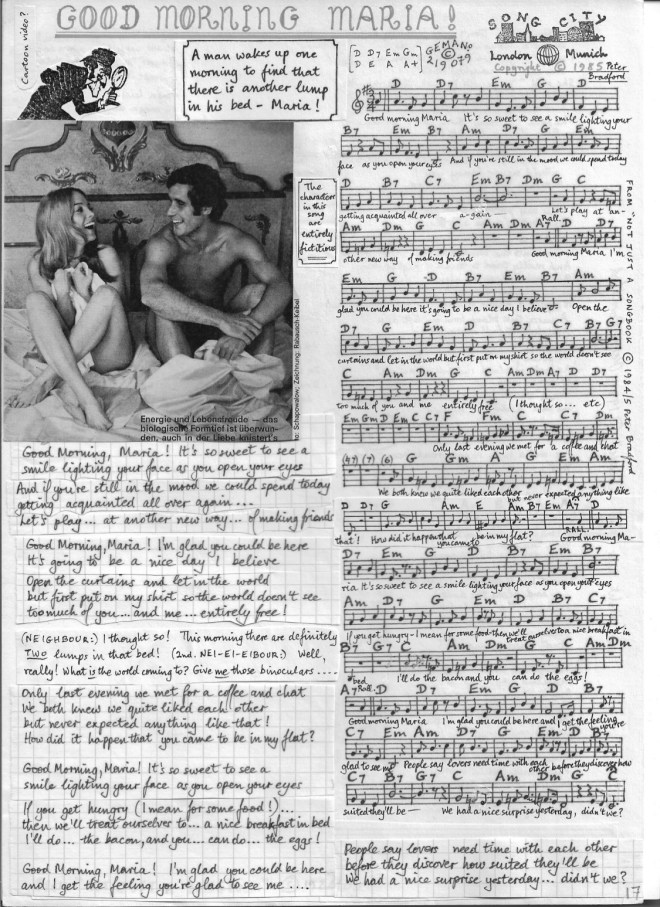 GOOD MORNING MARIA!
(Cartoon video?
A man wakes up one
morning to find that
there is another lump
in his bed - Maria!
[D D7 Em Gm]
D E A A+
GEMA No
219079
SONG CITY
London Munich
Copyright © 1985 Peter
Bradford
The
characters
in this
song
are
entirely
fictitious
Energie und Lebensfreude — das
biologische Formtief ist überwun-
den, auch in der Liebe knistert's
Schapowalow; Zeichnung: Rabausch-Keibel
FROM "NOT JUST A SONGBOOK" © 1984/5 Peter Bradford
D D7 Em G D
Good morning Maria It's so sweet to see a smile lighting your
B7 Em B7 Am D7 G Em
face as you open your eyes And if you're still in the mood we could spend today
D B7 C7 Em B7 Dm G C
getting acquainted all over a-gain Let's play at an-
Am Dm G C Am Dm A7 D D7
Rall.
other new way of making friends Good morning Maria, I'm
Em G D B7 Em B7 Am
glad you could be here it's going to be a nice day I believe Open the
D7 G Em D B7 C7 B7 G7
curtains and let in the world but first put on my shirt so the world doesn't see
C Am Dm G C Am Dm A7 D D7
too much of you and me entirely free (I thought so... etc)
Em Gm D Em C C7 F Fm C C7 Dm
Only last evening we met for a coffee and chat
(4♮7) (7) (6) G Gm A G Em Am
We both knew we quite liked each other but never expected anything like
D D7 G Am E Am B7 Em A7 D
that! How did it happen that you came to be in my flat? RALL. Good morning Ma-
D7 Em G D B7 Em B7
ria It's so sweet to see a smile lighting your face as you open your eyes
Am D7 G Em D B7 C7
If you get hungry - I mean for some food - then we'll treat ourselves to a nice breakfast in
B7 G7 C Am Dm G C Am Dm
bed I'll do the bacon and you can do the eggs!
A7 Rall. D D7 Em G D B7
Good morning Maria I'm glad you could be here and I get the feeling you're
C7 Em Am D7 G Em D B7
glad to see me People say lovers need time with each other before they discover how
C7 B7 G7 C Am Dm G C
suited they'll be— We had a nice surprise yesterday, didn't we?
Good Morning, Maria! It's so sweet to see a
smile lighting your face as you open your eyes
And if you're still in the mood we could spend today
getting acquainted all over again...
Let's play... at another new way... of making friends
Good Morning, Maria! I'm glad you could be here
It's going to be a nice day I believe
Open the curtains and let in the world
but first put on my shirt so the world doesn't see
too much of you... and me... entirely free!
(NEIGHBOUR:) I thought so! This morning there are definitely
TWO lumps in that bed! (2nd. NEI-EI-EIBOUR:) Well,
really! What is the world coming to? Give me those binoculars ....
Only last evening we met for a coffee and chat
We both knew we quite liked each other
but never expected anything like that!
How did it happen that you came to be in my flat?
Good Morning, Maria! It's so sweet to see a
smile lighting your face as you open your eyes
If you get hungry (I mean for some food!)...
then we'll treat ourselves to... a nice breakfast in bed
I'll do... the bacon, and you... can do... the eggs!
Good Morning, Maria! I'm glad you could be here
and I get the feeling you're glad to see me ....
People say lovers need time with each other
before they discover how suited they'll be
We had a nice surprise yesterday... didn't we?
17